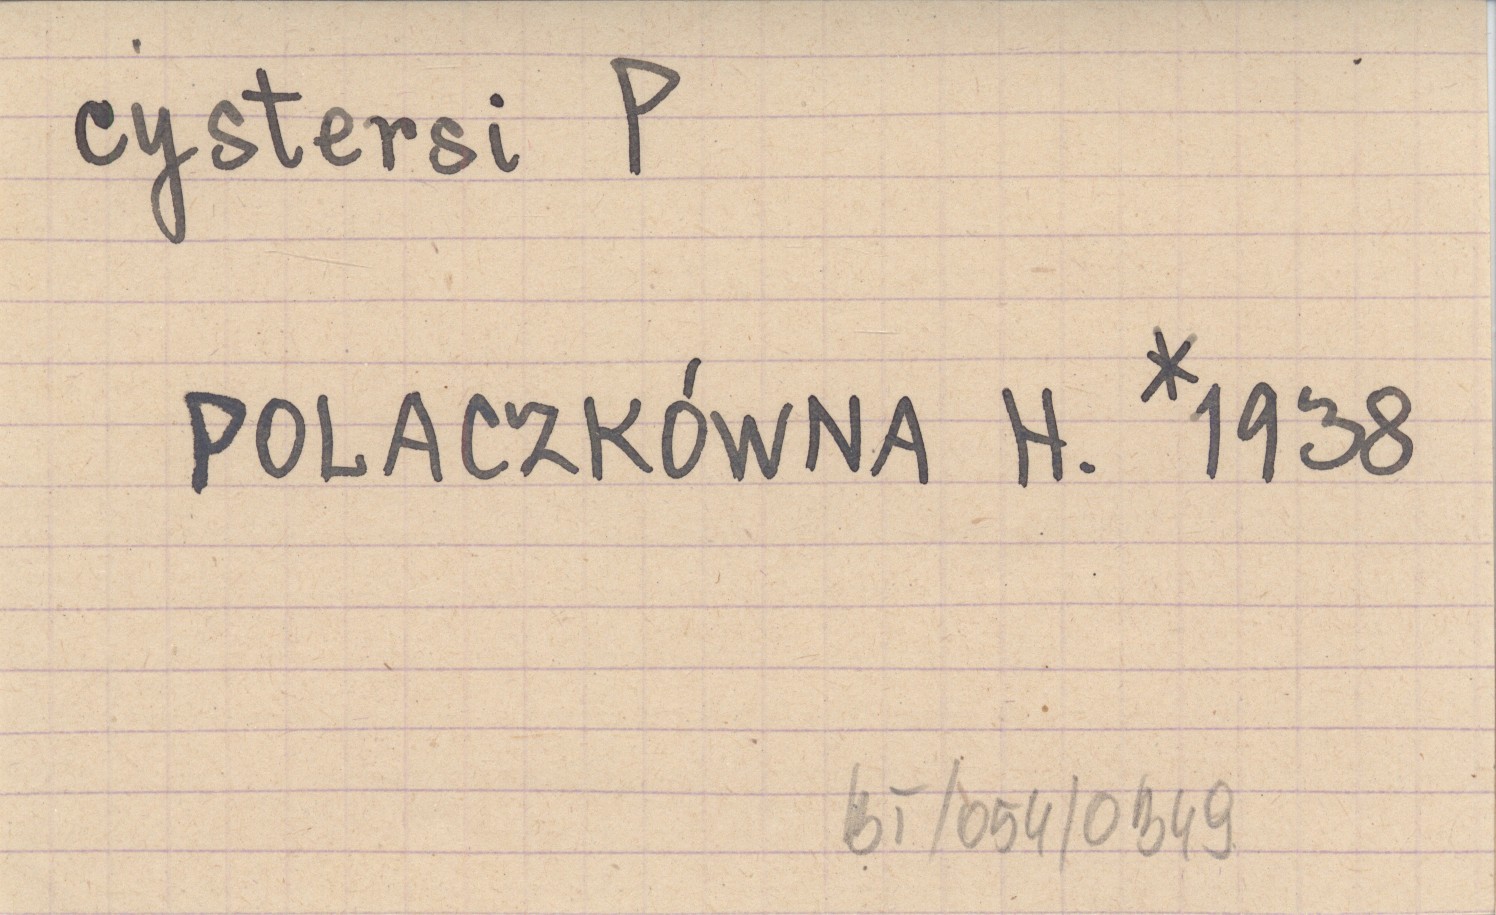 cystersi P
POLACZKÓWNA H. *1938
BT/054/0349